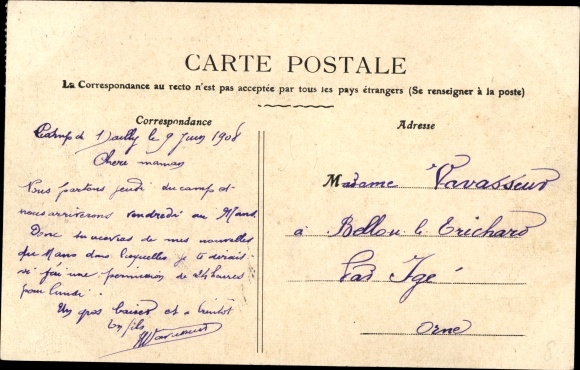 CARTE POSTALE
La Correspondance au recto n'est pas acceptée par tous les pays étrangers (Se renseigner à la poste)
Correspondance
Camp d Mailly le 9 Juin 1908
Chere maman
Nous partons jeudi du camp et
nous arriverons vendredi au Mans
Donc tu auras de mes nouvelles
du Mans dans lesquelles je te dirait
si j'ai une permission de 24 heures
pour lundi.
Un gros baiser et a bientot
ton fils
Adresse
Madame Vavasseur
à Bellou le Trichard
Par Igé
Orne
8